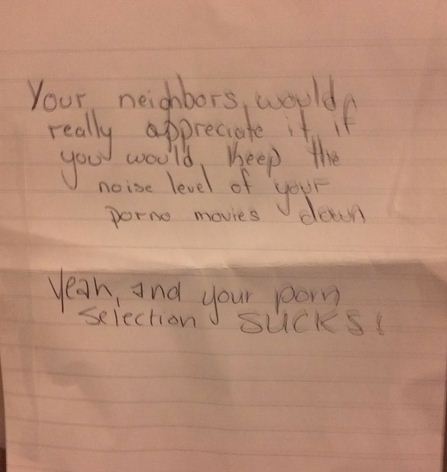 Your neighbors, would
really appreciate it, if
you would, keep the
noise level of your
porno movies down
Yeah, and your porn
selection SUCKS!